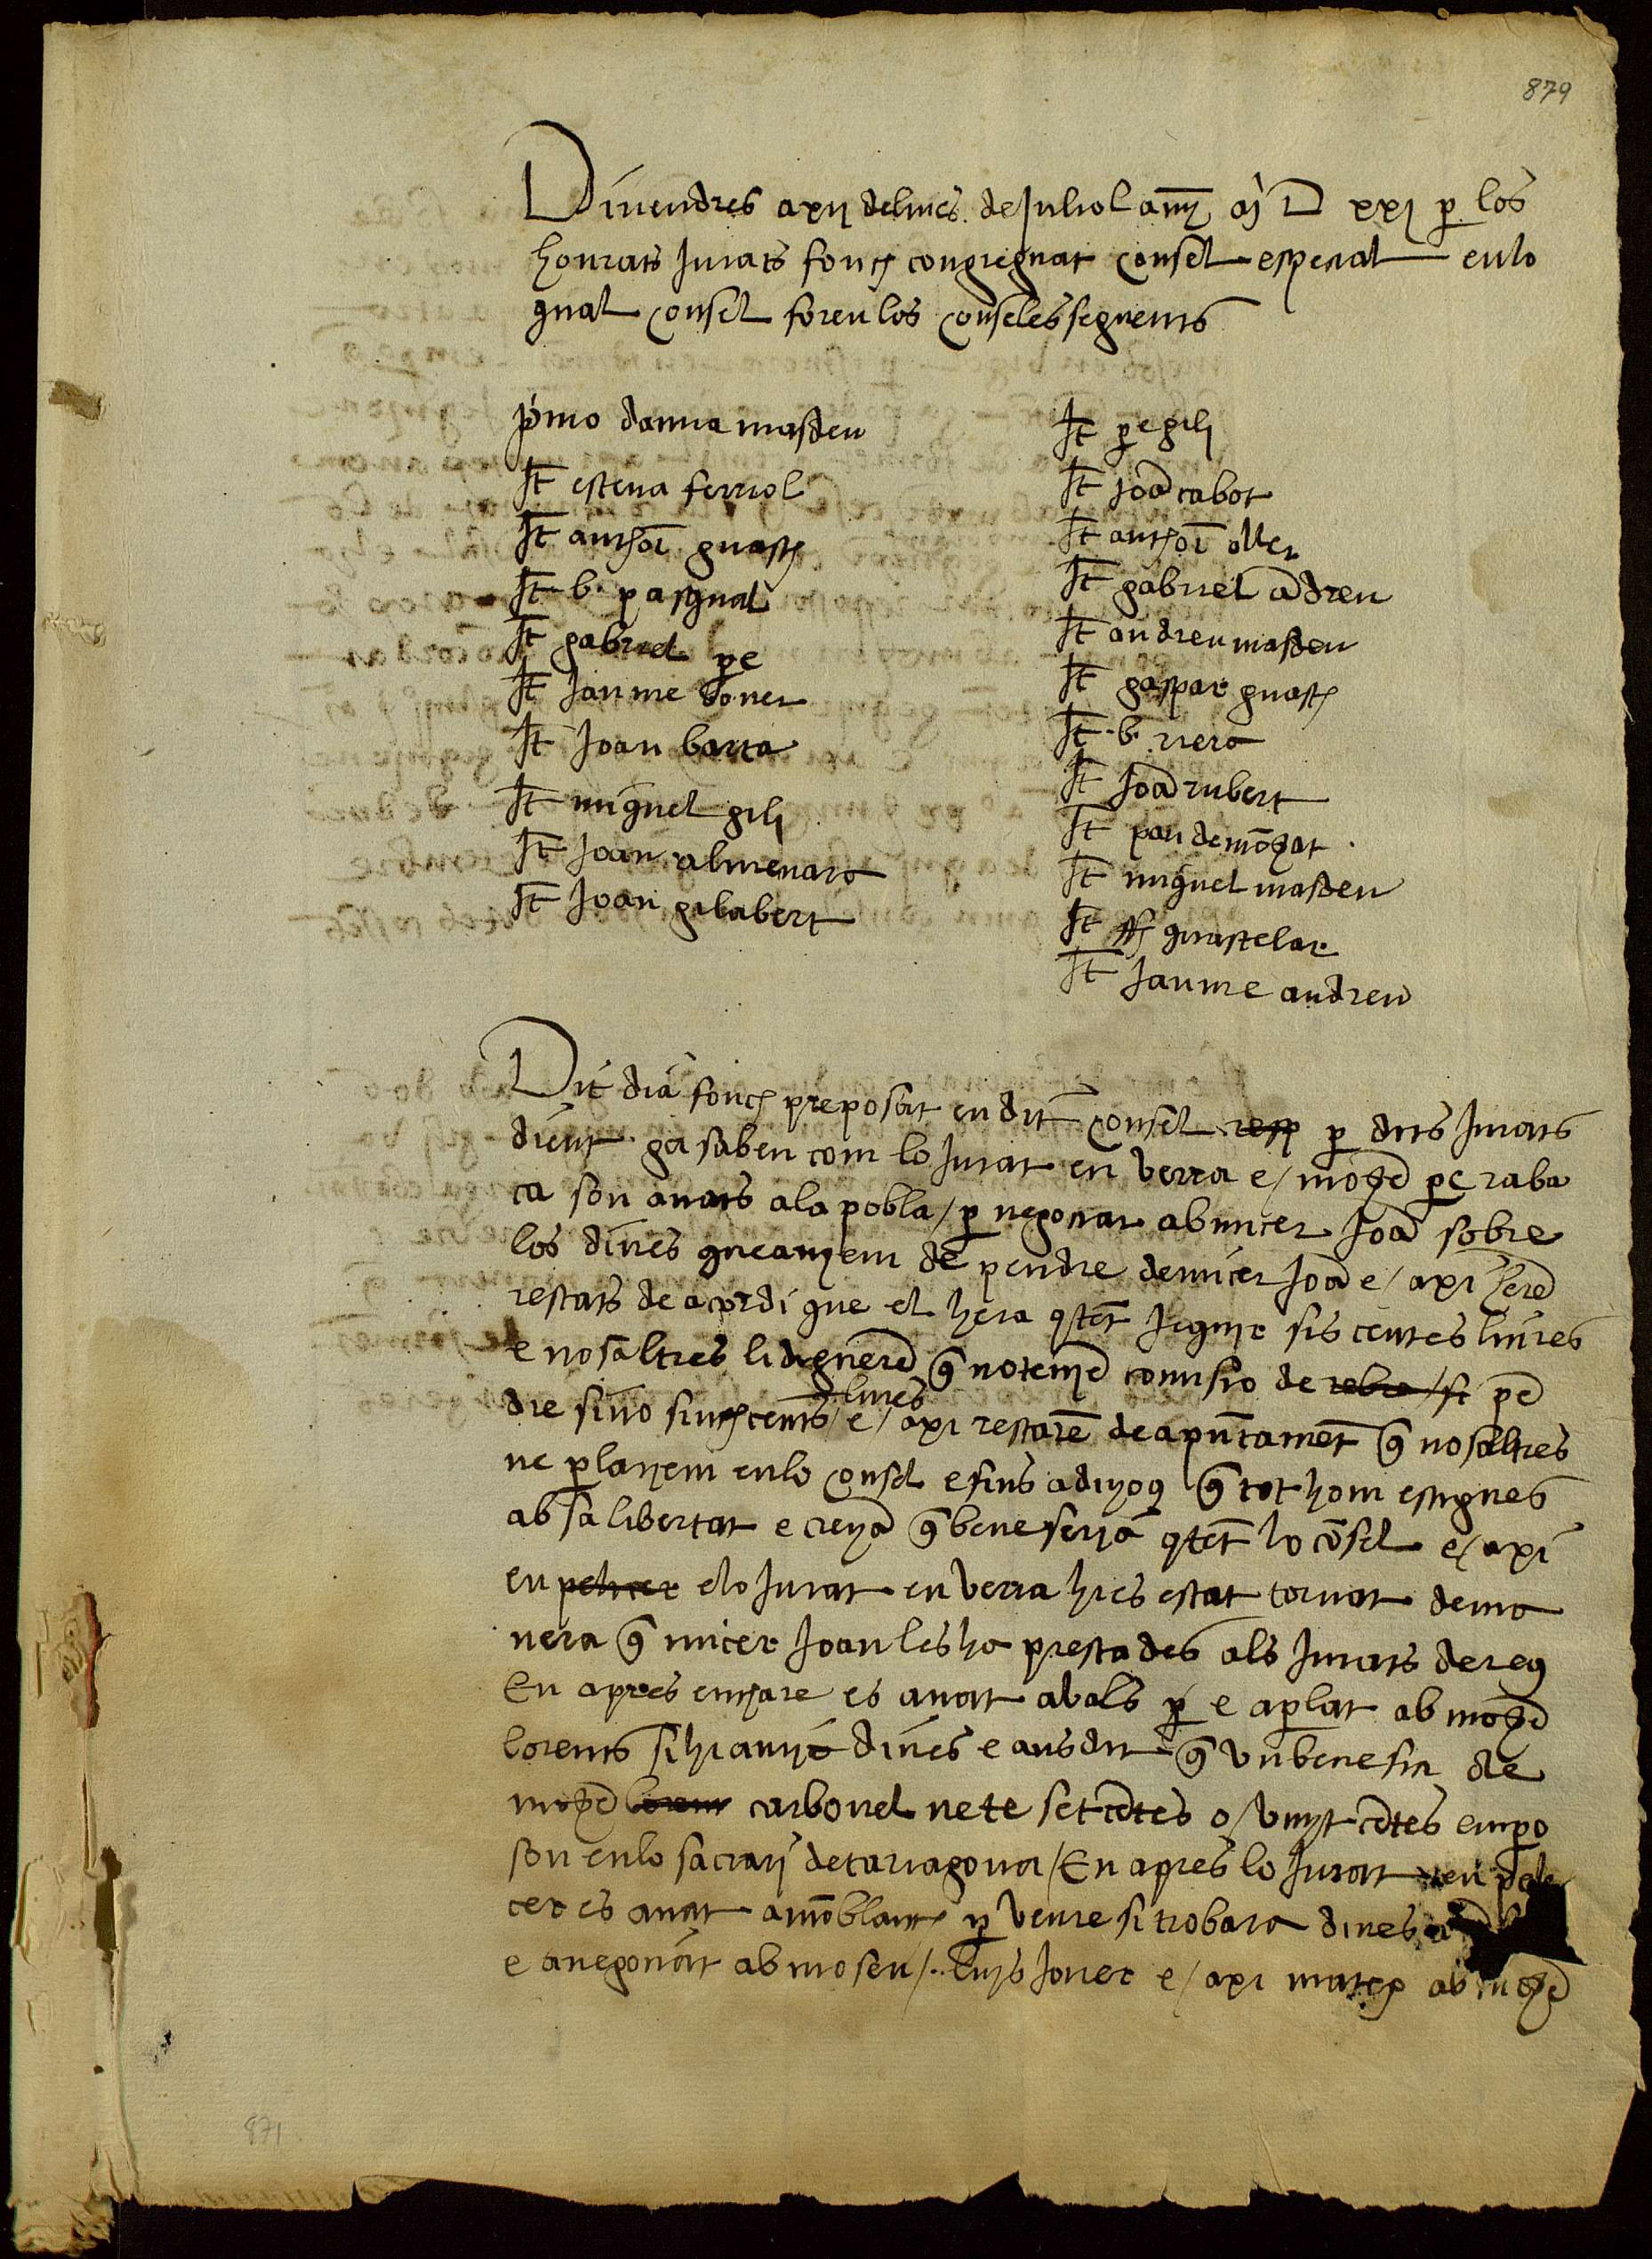 879
Divendres a xij del mes de Juliol any M D xxj p los
honrats Jurats fonch congreguat consel especial en lo
qual consel foren los conseles seguents
pmo damia masdeu
It esteva ferriol
It anthoi guasch
It b. pasqual
It gabriel pe
It Jaume boner
It Joan barta
It miquel gili
It Joan almenara
It Joan gilabert
It pe gili
It Joa cabot
It anthoi oller
It gabriel adreu
It andreu masdeu
It gaspar guasch
It b. riera
It Joa rubert
It pau de mogat
It miquel masdeu
It ff guastelar
It Jaume andreu
Dit dia fonch preposat en dit consel resp p dits Jurats
dient ja saben com lo Jurat en verra e / moße pe raba
ca son anats a la pobla / p negociar ab micer Joa sobre
los dines que aviem de pendre de micer Joa e / axi here
restats de acordi que el hera qtet sis centes liures
e nosaltres li diguere q no tenie comisio de rebre / si pe
dre sino sinchcents liures / e / axi restare de apuntamet q nosaltres
ne plariem en lo consel e fins adiyog q tot hom estigues
ab sa libertat e creya q bene seria qtet lo cosel e / axi
en pelicer e lo Jurat en verra hies estat tornat de ma
nera q micer Joan les ha prestades als Jurats de reg
En apres encare es anat a vals p e a plat ab moße
lorens si hi avie dines e ans dit q un benefici de
moße lorens carbonel ne te setcetes o / vuyt cetes empo
son en lo sacrari de taragona / En apres lo Jurat en peli
cer es anat a moblanch p veure si trobara dines
e a negociat ab mosen / luys Jover e / axi matex ab moße
871